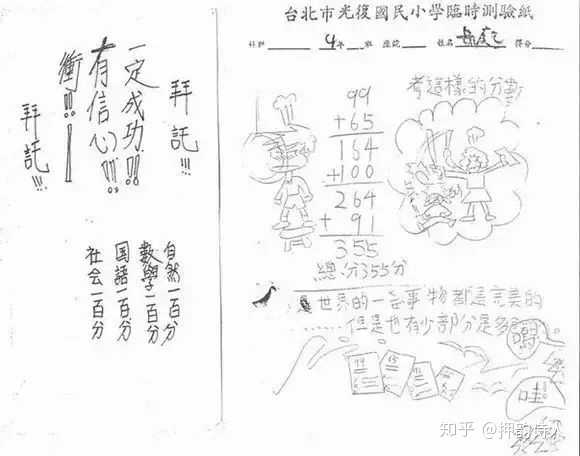 台北市光復國民小學臨時測驗紙
科別 4年 班 座號 姓名 得分
考這樣的分數
99
+65
164
+100
264
+ 91
355
總分355分
世界的一些事物都是完美的
……但是也有少部分是多
哇
拜託!!!
一定成功!!
有信心!!!
衝!!!
拜託!!!
自然一百分
數學一百分
国語一百分
社会一百分
知乎 @押韵诗人